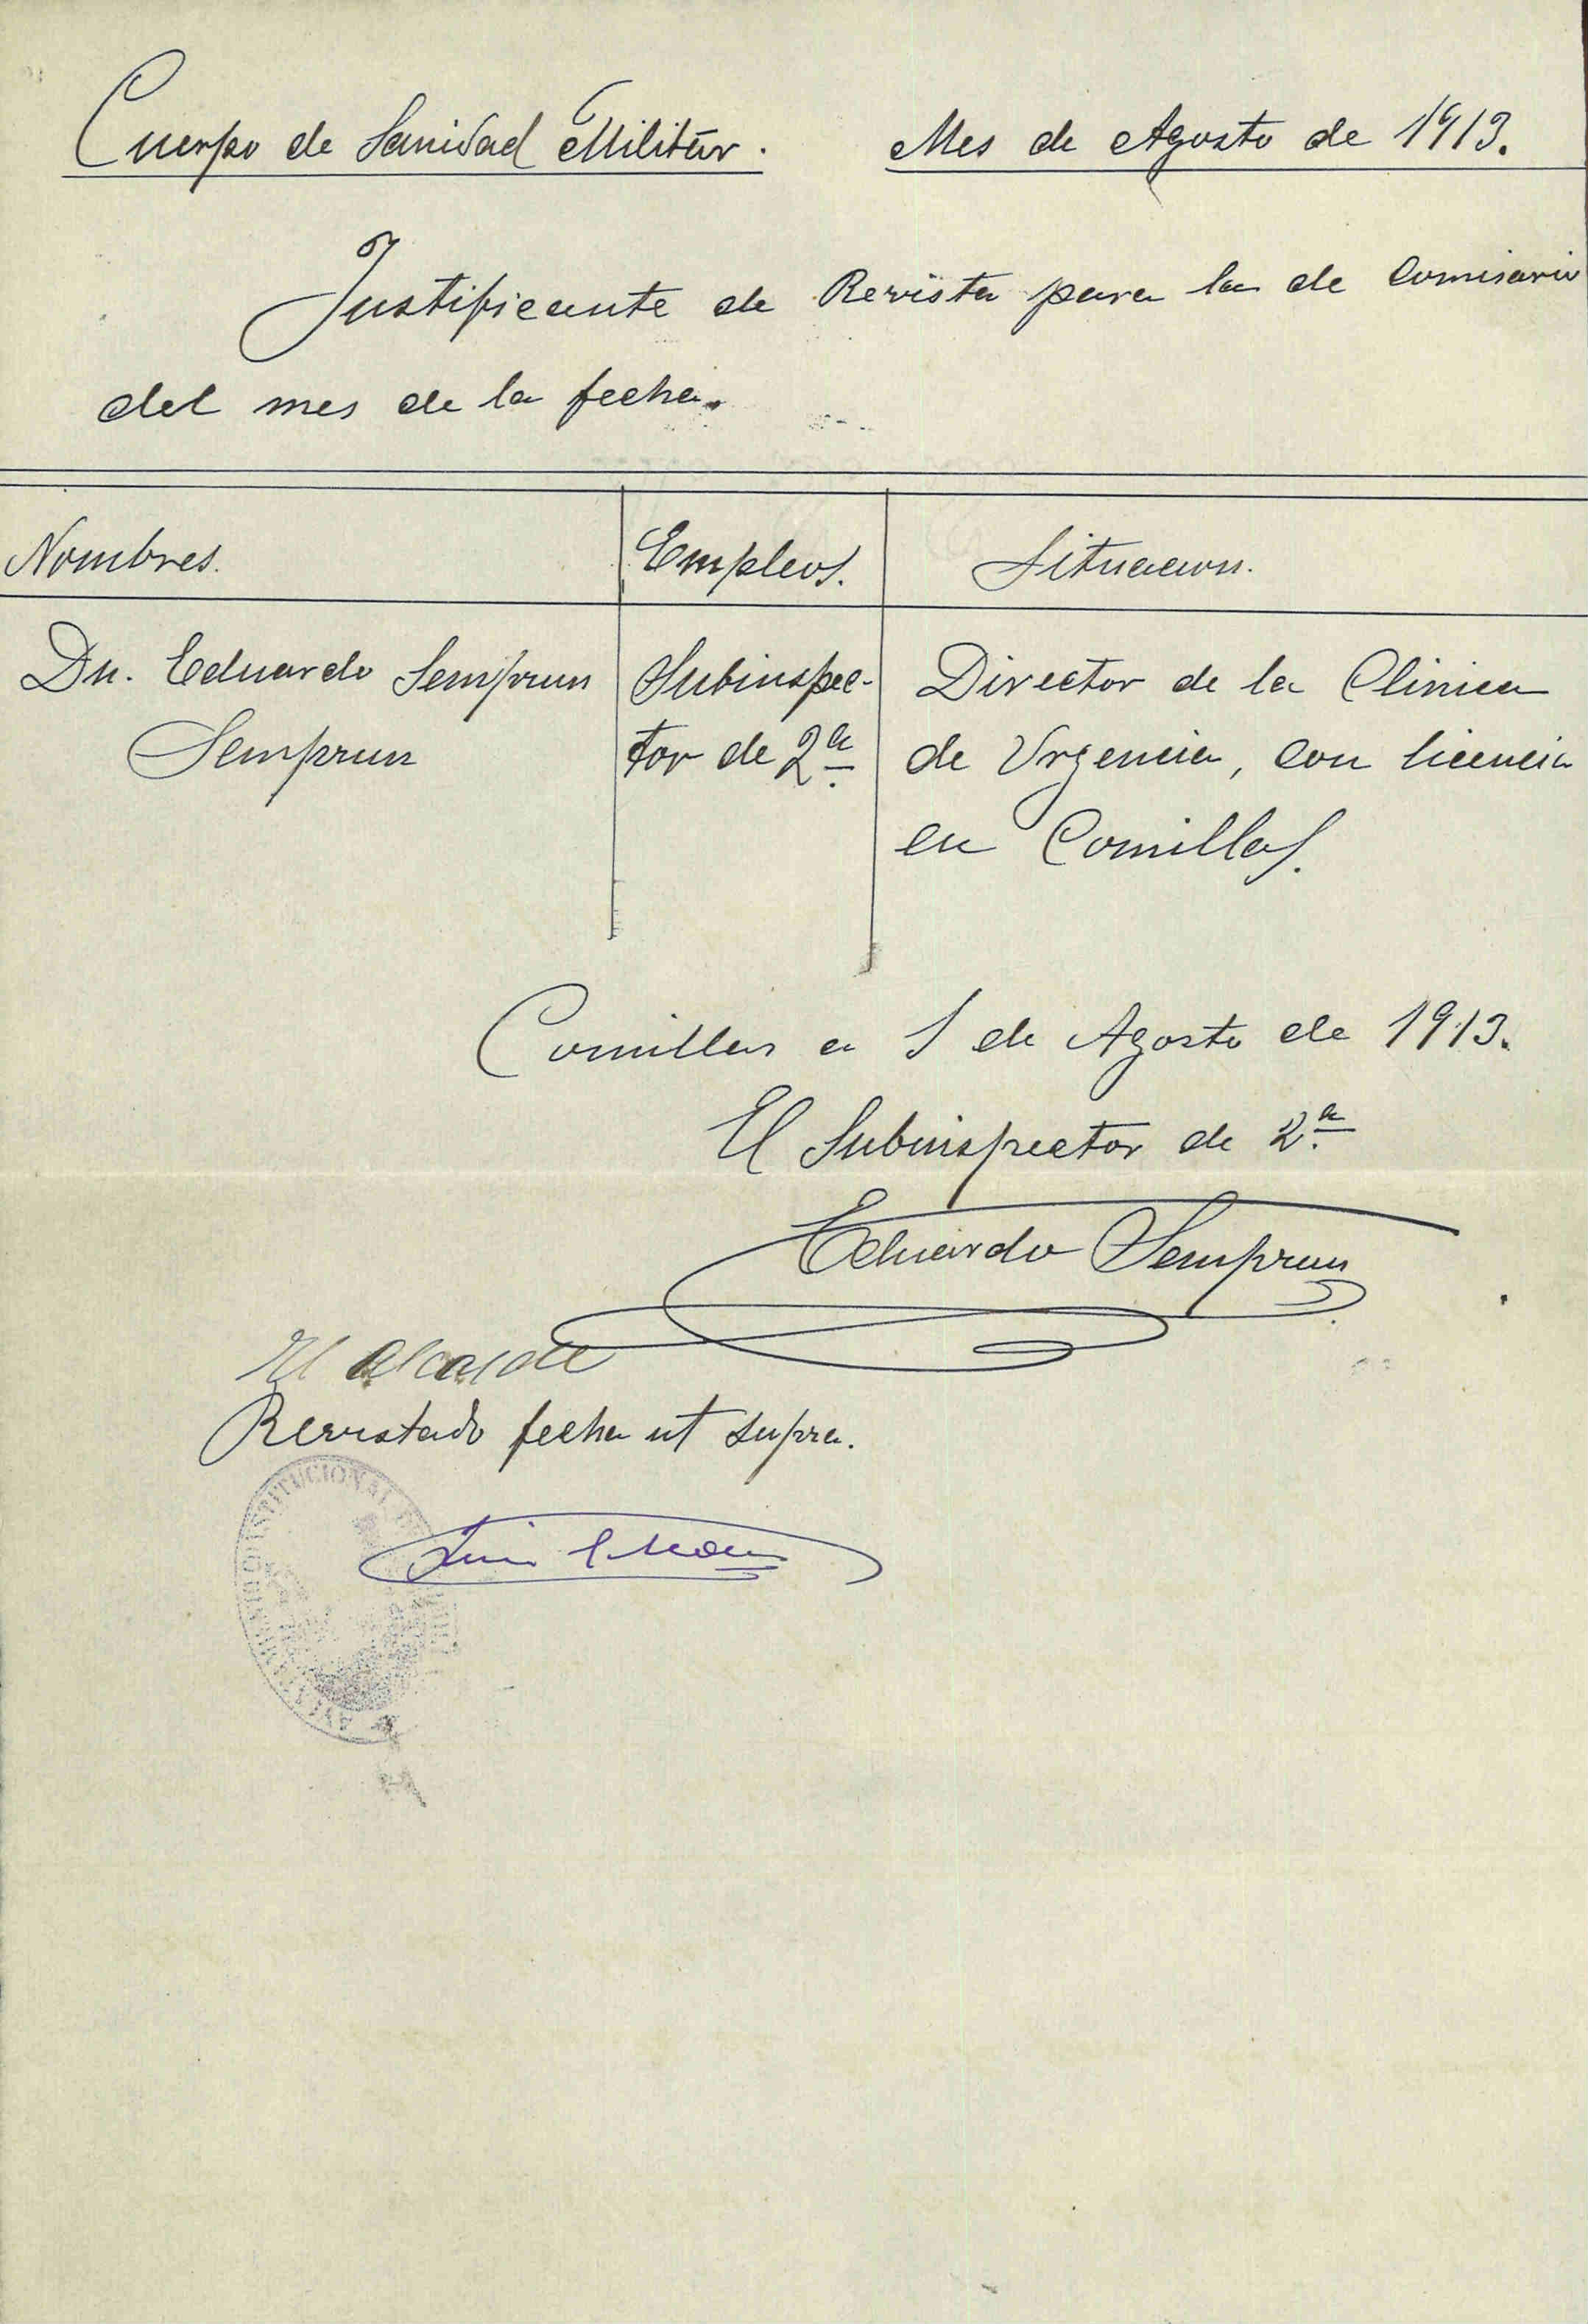 Cuerpo de Sanidad Militar. Mes de Agosto de 1913.
Justificante de Revista para la de Comisario
del mes de la fecha.
Nombres. Empleos. Situacion.
Dn. Eduardo Semprun Subinspec- Director de la Clinica
Semprun tor de 2ª de Urgencia, con licencia
en Comillas.
Comillas a 1 de Agosto de 1913.
El Subinspector de 2ª
Eduardo Semprun
El Alcalde
Revistado fecha ut supra.